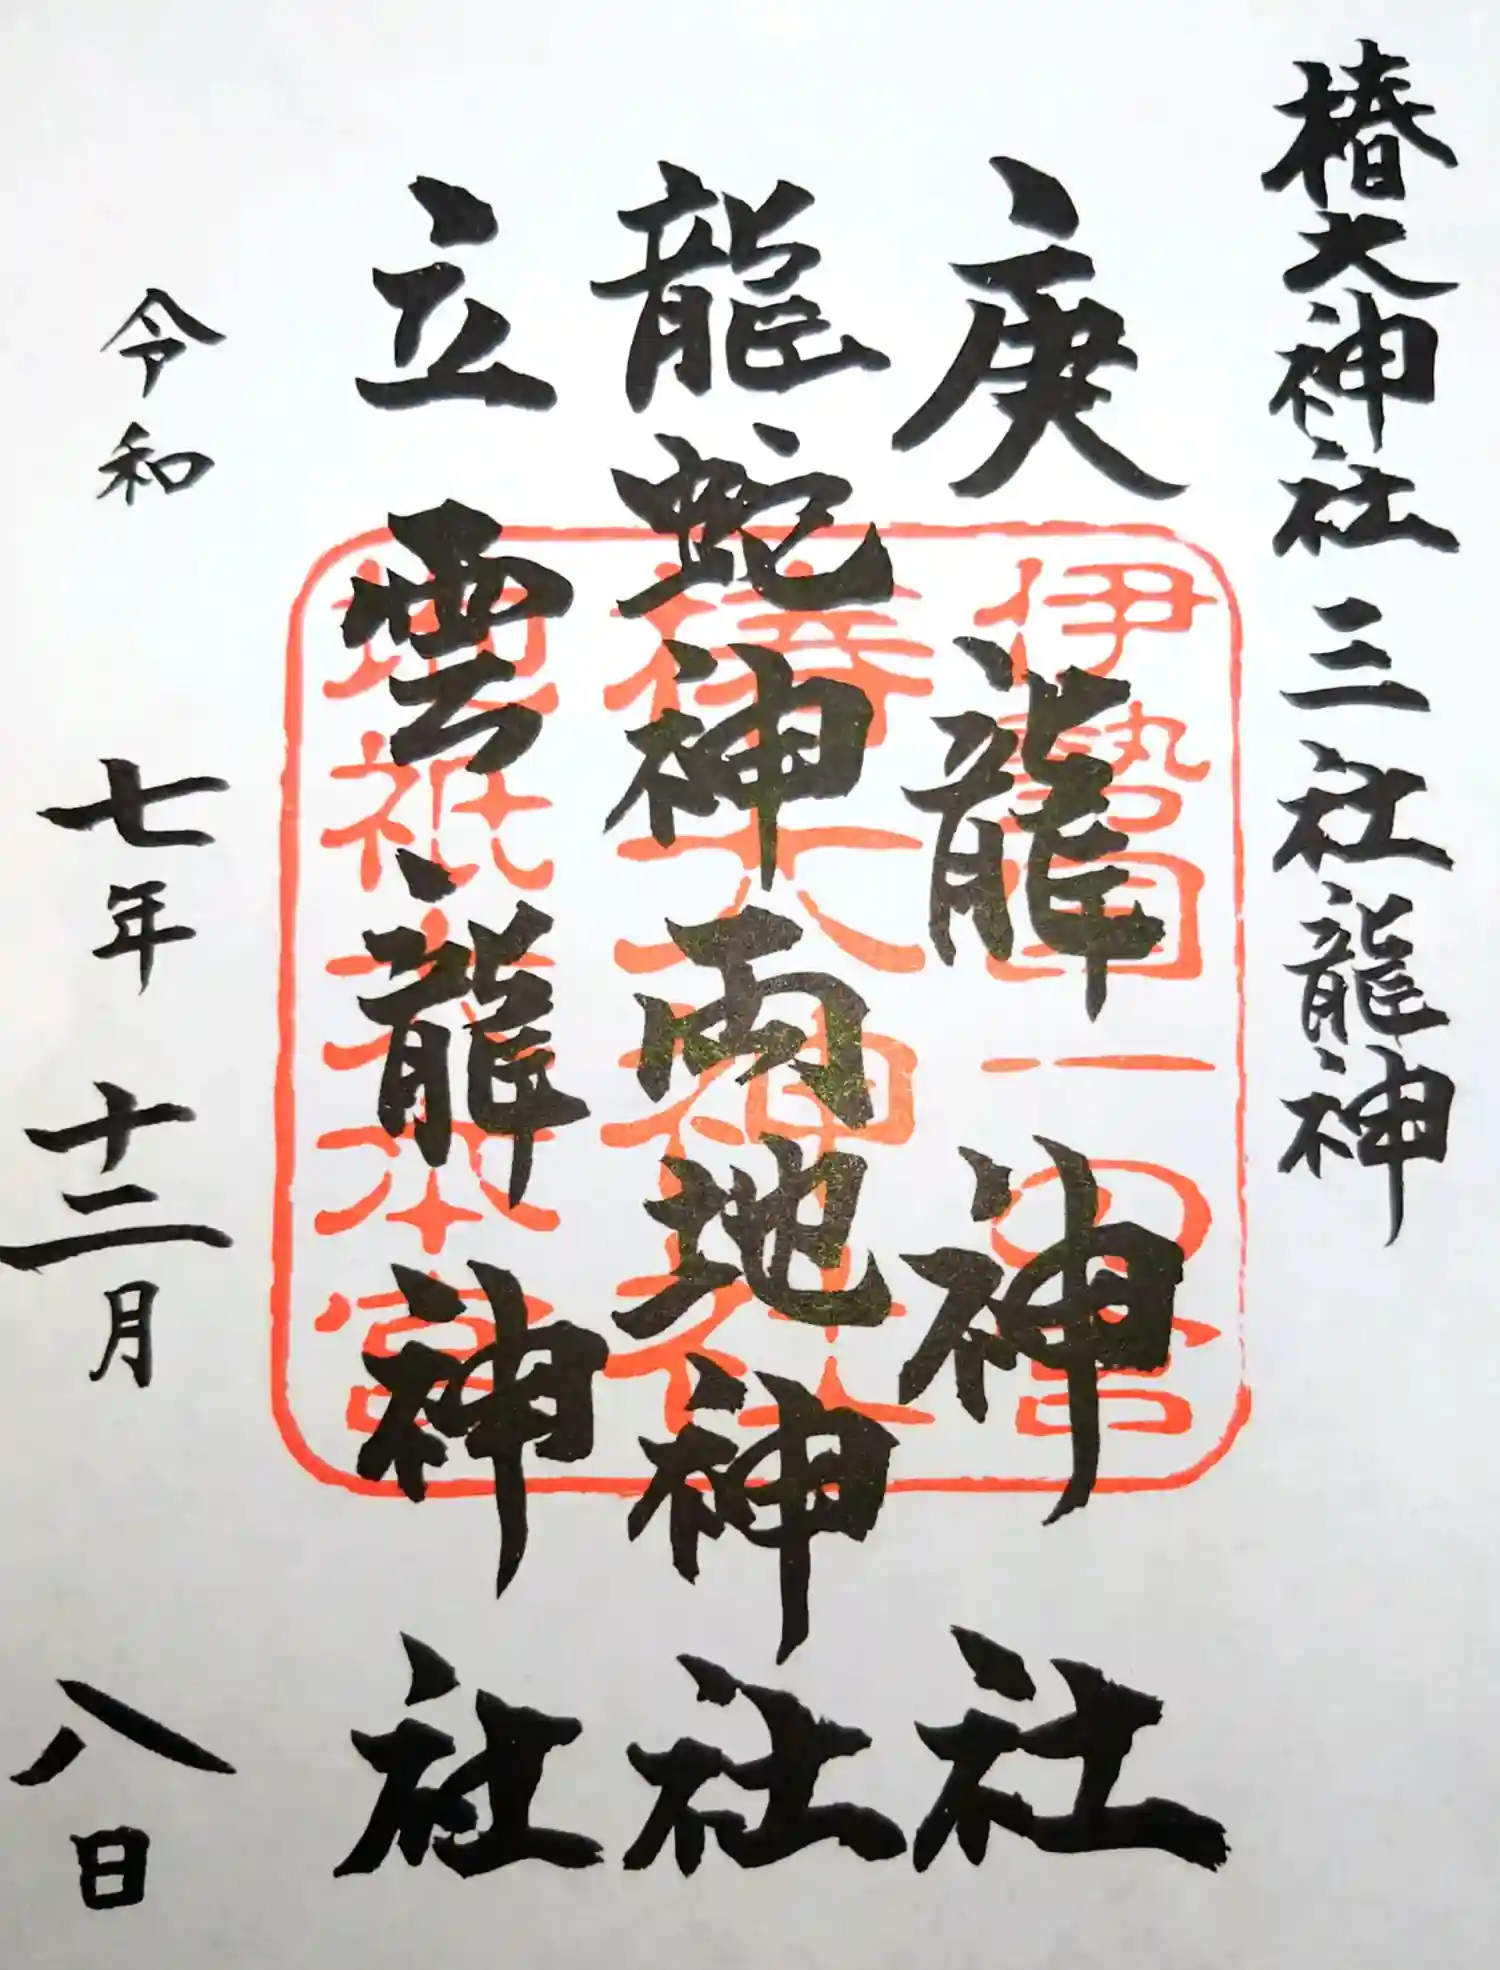 椿大神社 三社龍神
庚龍神社
龍蛇神両地神社
立雲龍神社
令和七年十二月八日
伊勢国一の宮
椿大神社
地祇大本宮